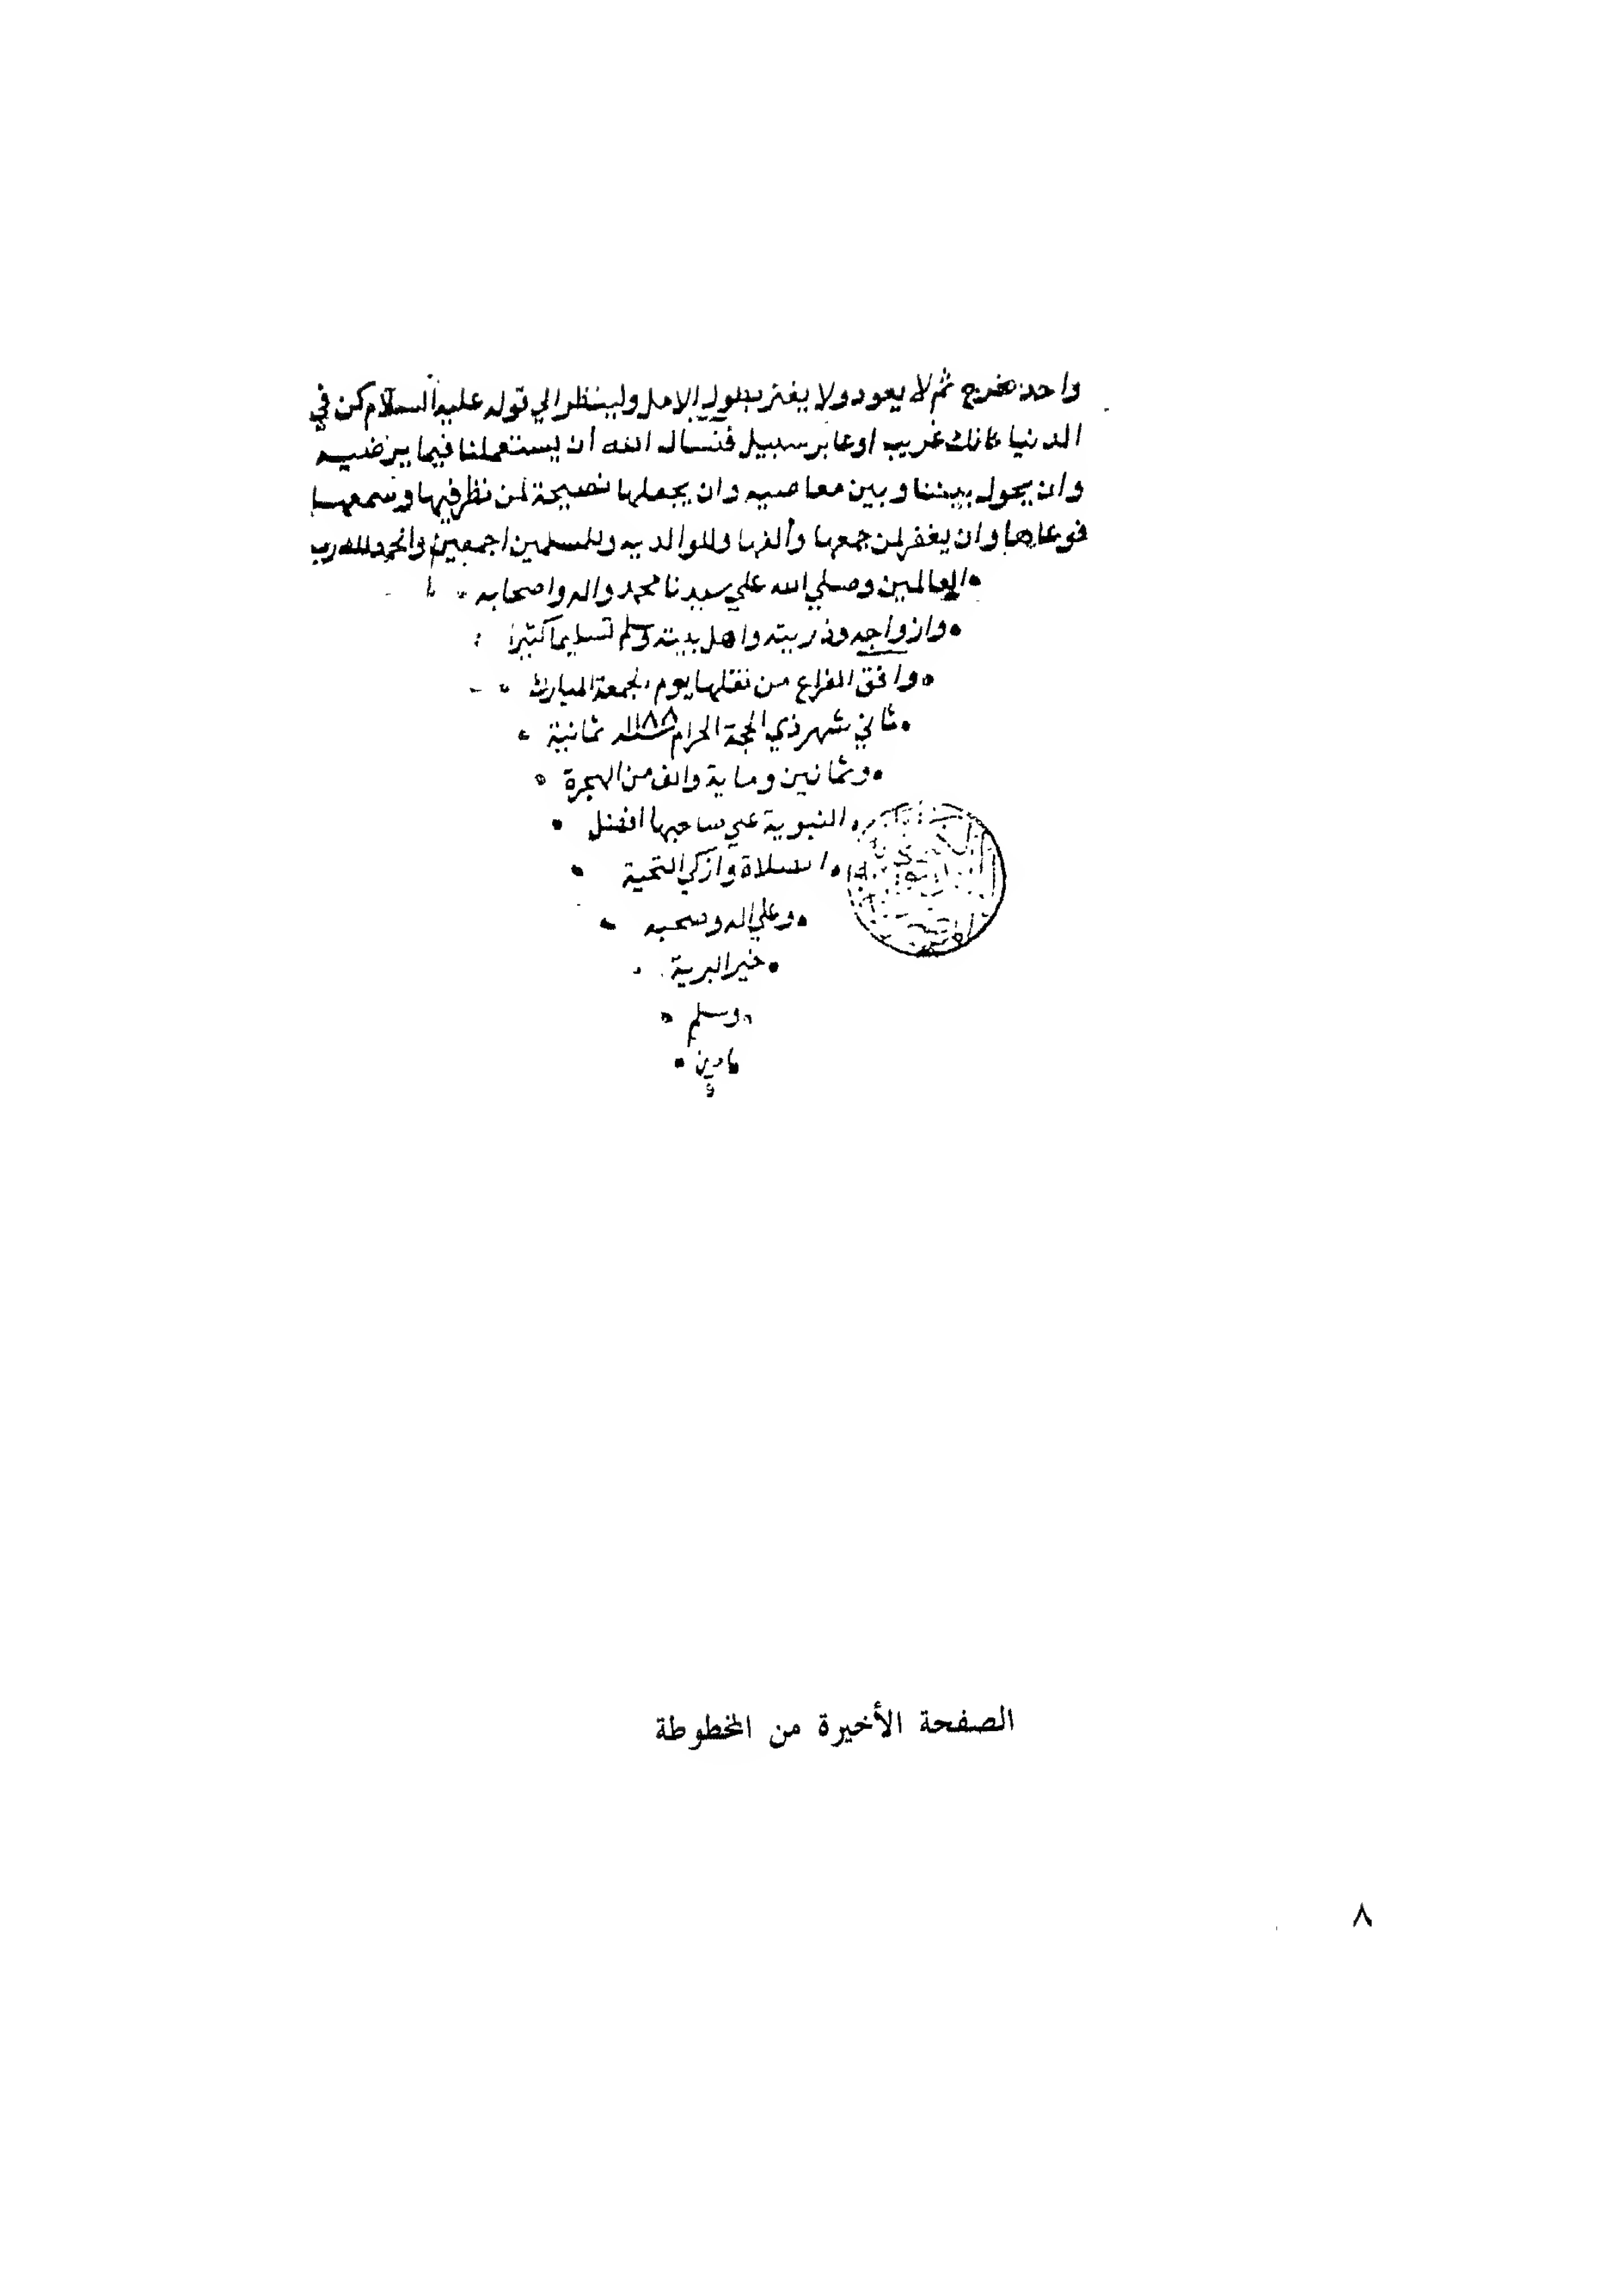 واحد فخرج ثم لا يعود ولا يغتر بطول الامل ولينظر الي قوله عليه السلام كن في
الدنيا كانك غريب او عابر سبيل فنسال الله ان يستعملنا فيما يرضيه
وان يحول بيننا وبين معاصيه وان يجعلها نصيحة لمن نظر فيها وسمعها
فوعاها وان يغفر لمن جمعها والفها وللوالديه وللمسلمين اجمعين والحمد لله رب
العالمين وصلي الله علي سيدنا محمد واله واصحابه
وازواجه وذريته واهل بيته وسلم تسليما كثيرا
وافق الفراغ من نقلها يوم الجمعة المبارك
ثاني شهر ذي الحجة الحرام سنة ١١٨٨ ثمانية
وثمانين وماية والف من الهجرة
النبوية علي صاحبها افضل
الصلاة وازكي التحية
وعلي اله وصحبه
خير البرية
وسلم
امين
الصفحة الأخيرة من المخطوطة
٨